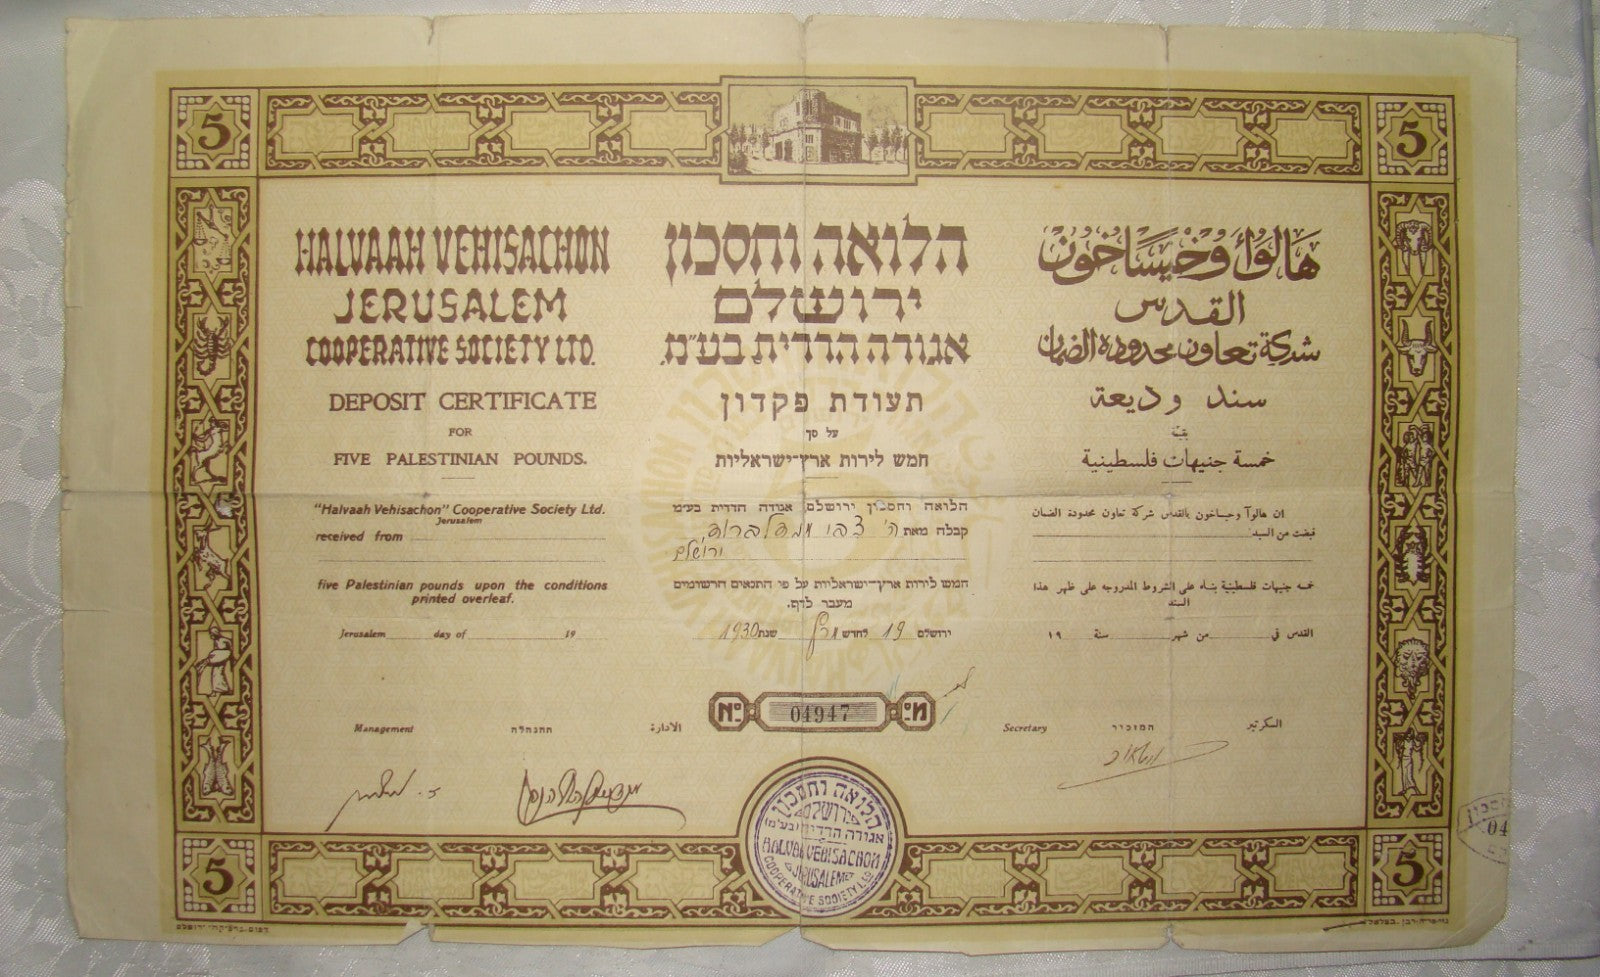 5
5
HALVAAH VEHISACHON
JERUSALEM
COOPERATIVE SOCIETY LTD.
DEPOSIT CERTIFICATE
FOR
FIVE PALESTINIAN POUNDS.
"Halvaah Vehisachon" Cooperative Society Ltd.
Jerusalem
received from
five Palestinian pounds upon the conditions
printed overleaf.
Jerusalem day of 19
הלואה וחסכון
ירושלם
אגודה הדדית בע"מ.
תעודת פקדון
על סך
חמש לירות ארץ-ישראליות
הלואה וחסכון ירושלם, אגודה הדדית בע"מ
קבלה מאת ה' צבי
ירושלם
חמש לירות ארץ-ישראליות על פי התנאים הרשומים
מעבר לדף.
ירושלם 19 לחדש מרץ שנת 1930
هالوأ وخيساخون
القدس
شركة تعاون محدودة الضمان
سند وديعة
بقيمة
خمسة جنيهات فلسطينية
ان هالوآ وخيساخون بالقدس شركة تعاون محدودة الضمان
قبضت من السيد
خمسة جنيهات فلسطينية بناء على الشروط المدروجه على ظهر هذا
السند
القدس في من شهر سنة ١٩
№ 04947 מס
Management ההנהלה الادارة
Secretary המזכיר السكرتير
הלואה וחסכון
ירושלם
אגודה הדדית (בע"מ)
HALVAH VEHISACHON
JERUSALEM
COOPERATIVE SOCIETY LTD
04
5
5
דפוס גרפיקה, ירושלם